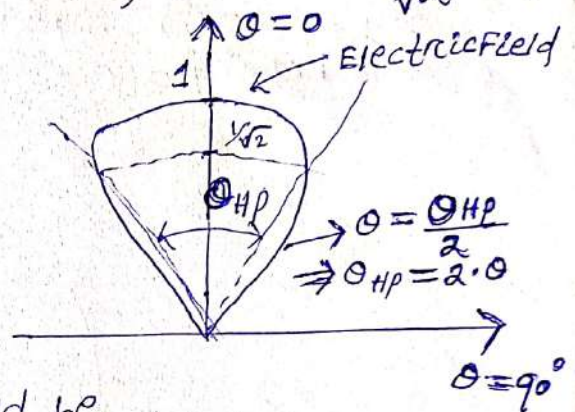 θ = 0
Electric Field
1
1/√2
θHP
→ θ = θHP/2
⇒ θHP = 2·θ
θ = 90°